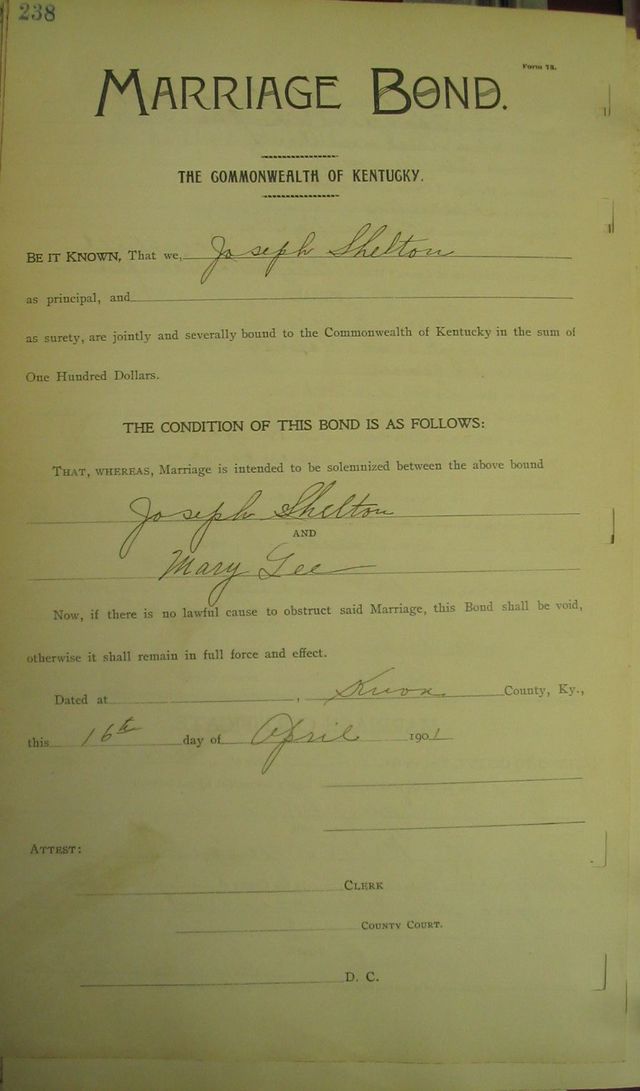 238
Form 78.
MARRIAGE BOND.
THE COMMONWEALTH OF KENTUCKY.
BE IT KNOWN, That we, Joseph Shelton
as principal, and
as surety, are jointly and severally bound to the Commonwealth of Kentucky in the sum of
One Hundred Dollars.
THE CONDITION OF THIS BOND IS AS FOLLOWS:
THAT, WHEREAS, Marriage is intended to be solemnized between the above bound
Joseph Shelton
AND
Mary Lee
Now, if there is no lawful cause to obstruct said Marriage, this Bond shall be void,
otherwise it shall remain in full force and effect.
Dated at , Knox County, Ky.,
this 16th day of April 1901
ATTEST:
CLERK
COUNTY COURT.
D. C.